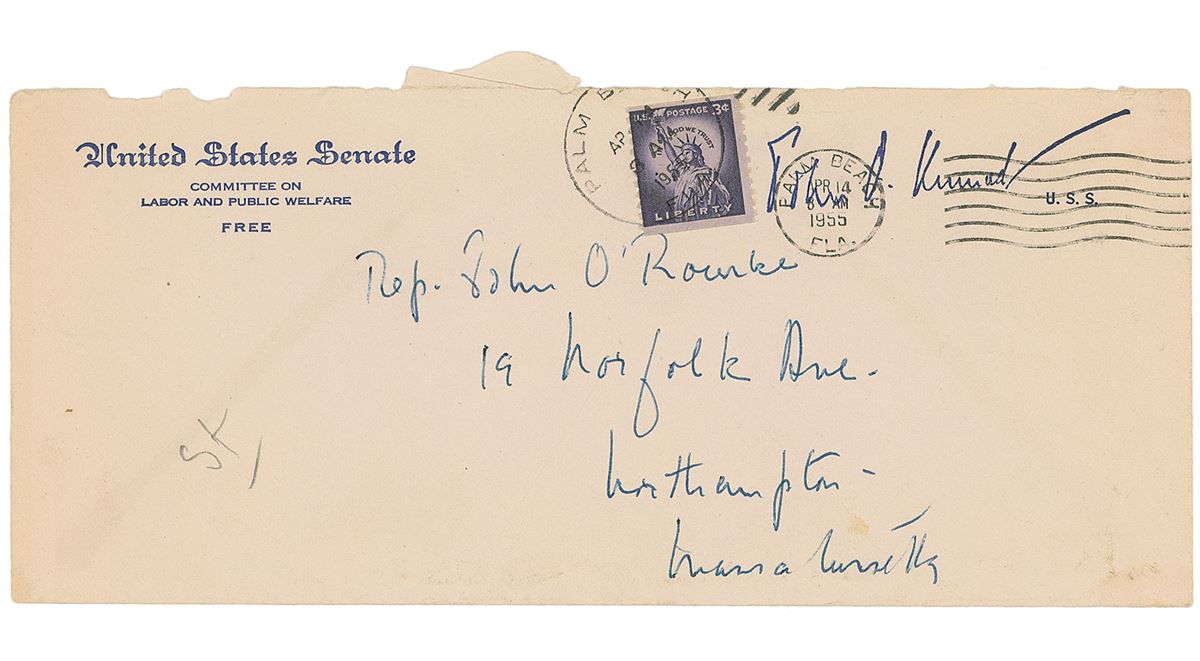 United States Senate
COMMITTEE ON
LABOR AND PUBLIC WELFARE
FREE
PALM BEACH
U.S. POSTAGE 3¢
IN GOD WE TRUST
LIBERTY
John F. Kennedy
PALM BEACH
APR 14
AM
1955
FLA.
U. S. S.
Rep. John O'Rourke
19 Norfolk Ave.
Northampton -
Massachusetts